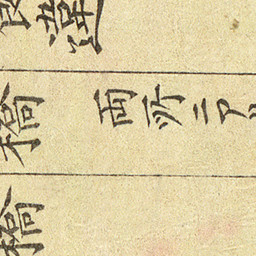 蓮
橋 両所ニア
橋